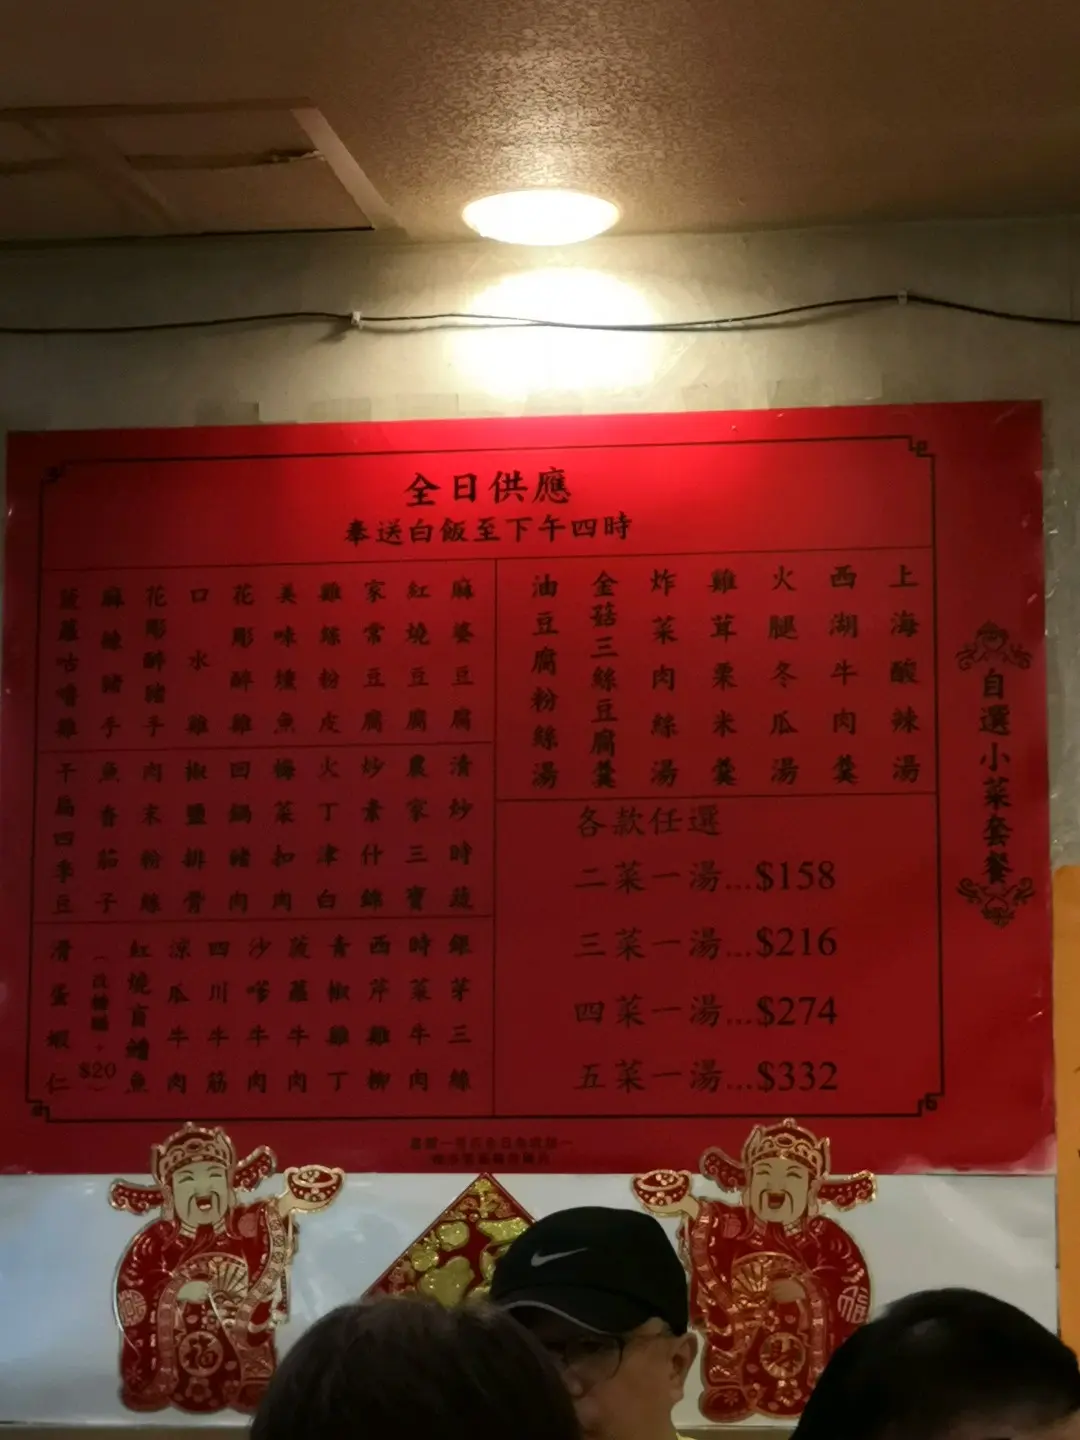 自選小菜套餐
全日供應
奉送白飯至下午四時
上海酸辣湯
西湖牛肉羹
火腿冬瓜湯
雞茸粟米羹
炸菜肉絲湯
金菇三絲豆腐羹
油豆腐粉絲湯
各款任選
二菜一湯...$158
三菜一湯...$216
四菜一湯...$274
五菜一湯...$332
麻婆豆腐
紅燒豆腐
家常豆腐
雞絲粉皮
美味燻魚
花彫醉雞
口水雞
花彫醉豬手
麻辣豬手
菠蘿咕嚕雞
清炒時蔬
農家三寶
炒素什錦
火丁津白
梅菜扣肉
回鍋豬肉
椒鹽排骨
肉末粉絲
魚香茄子
干扁四季豆
銀芽三絲
時菜牛肉
西芹雞柳
青椒雞丁
菠蘿牛肉
沙嗲牛肉
四川牛筋
涼瓜牛肉
紅燒盲鰽魚
$20
滑蛋蝦仁
福
財
福